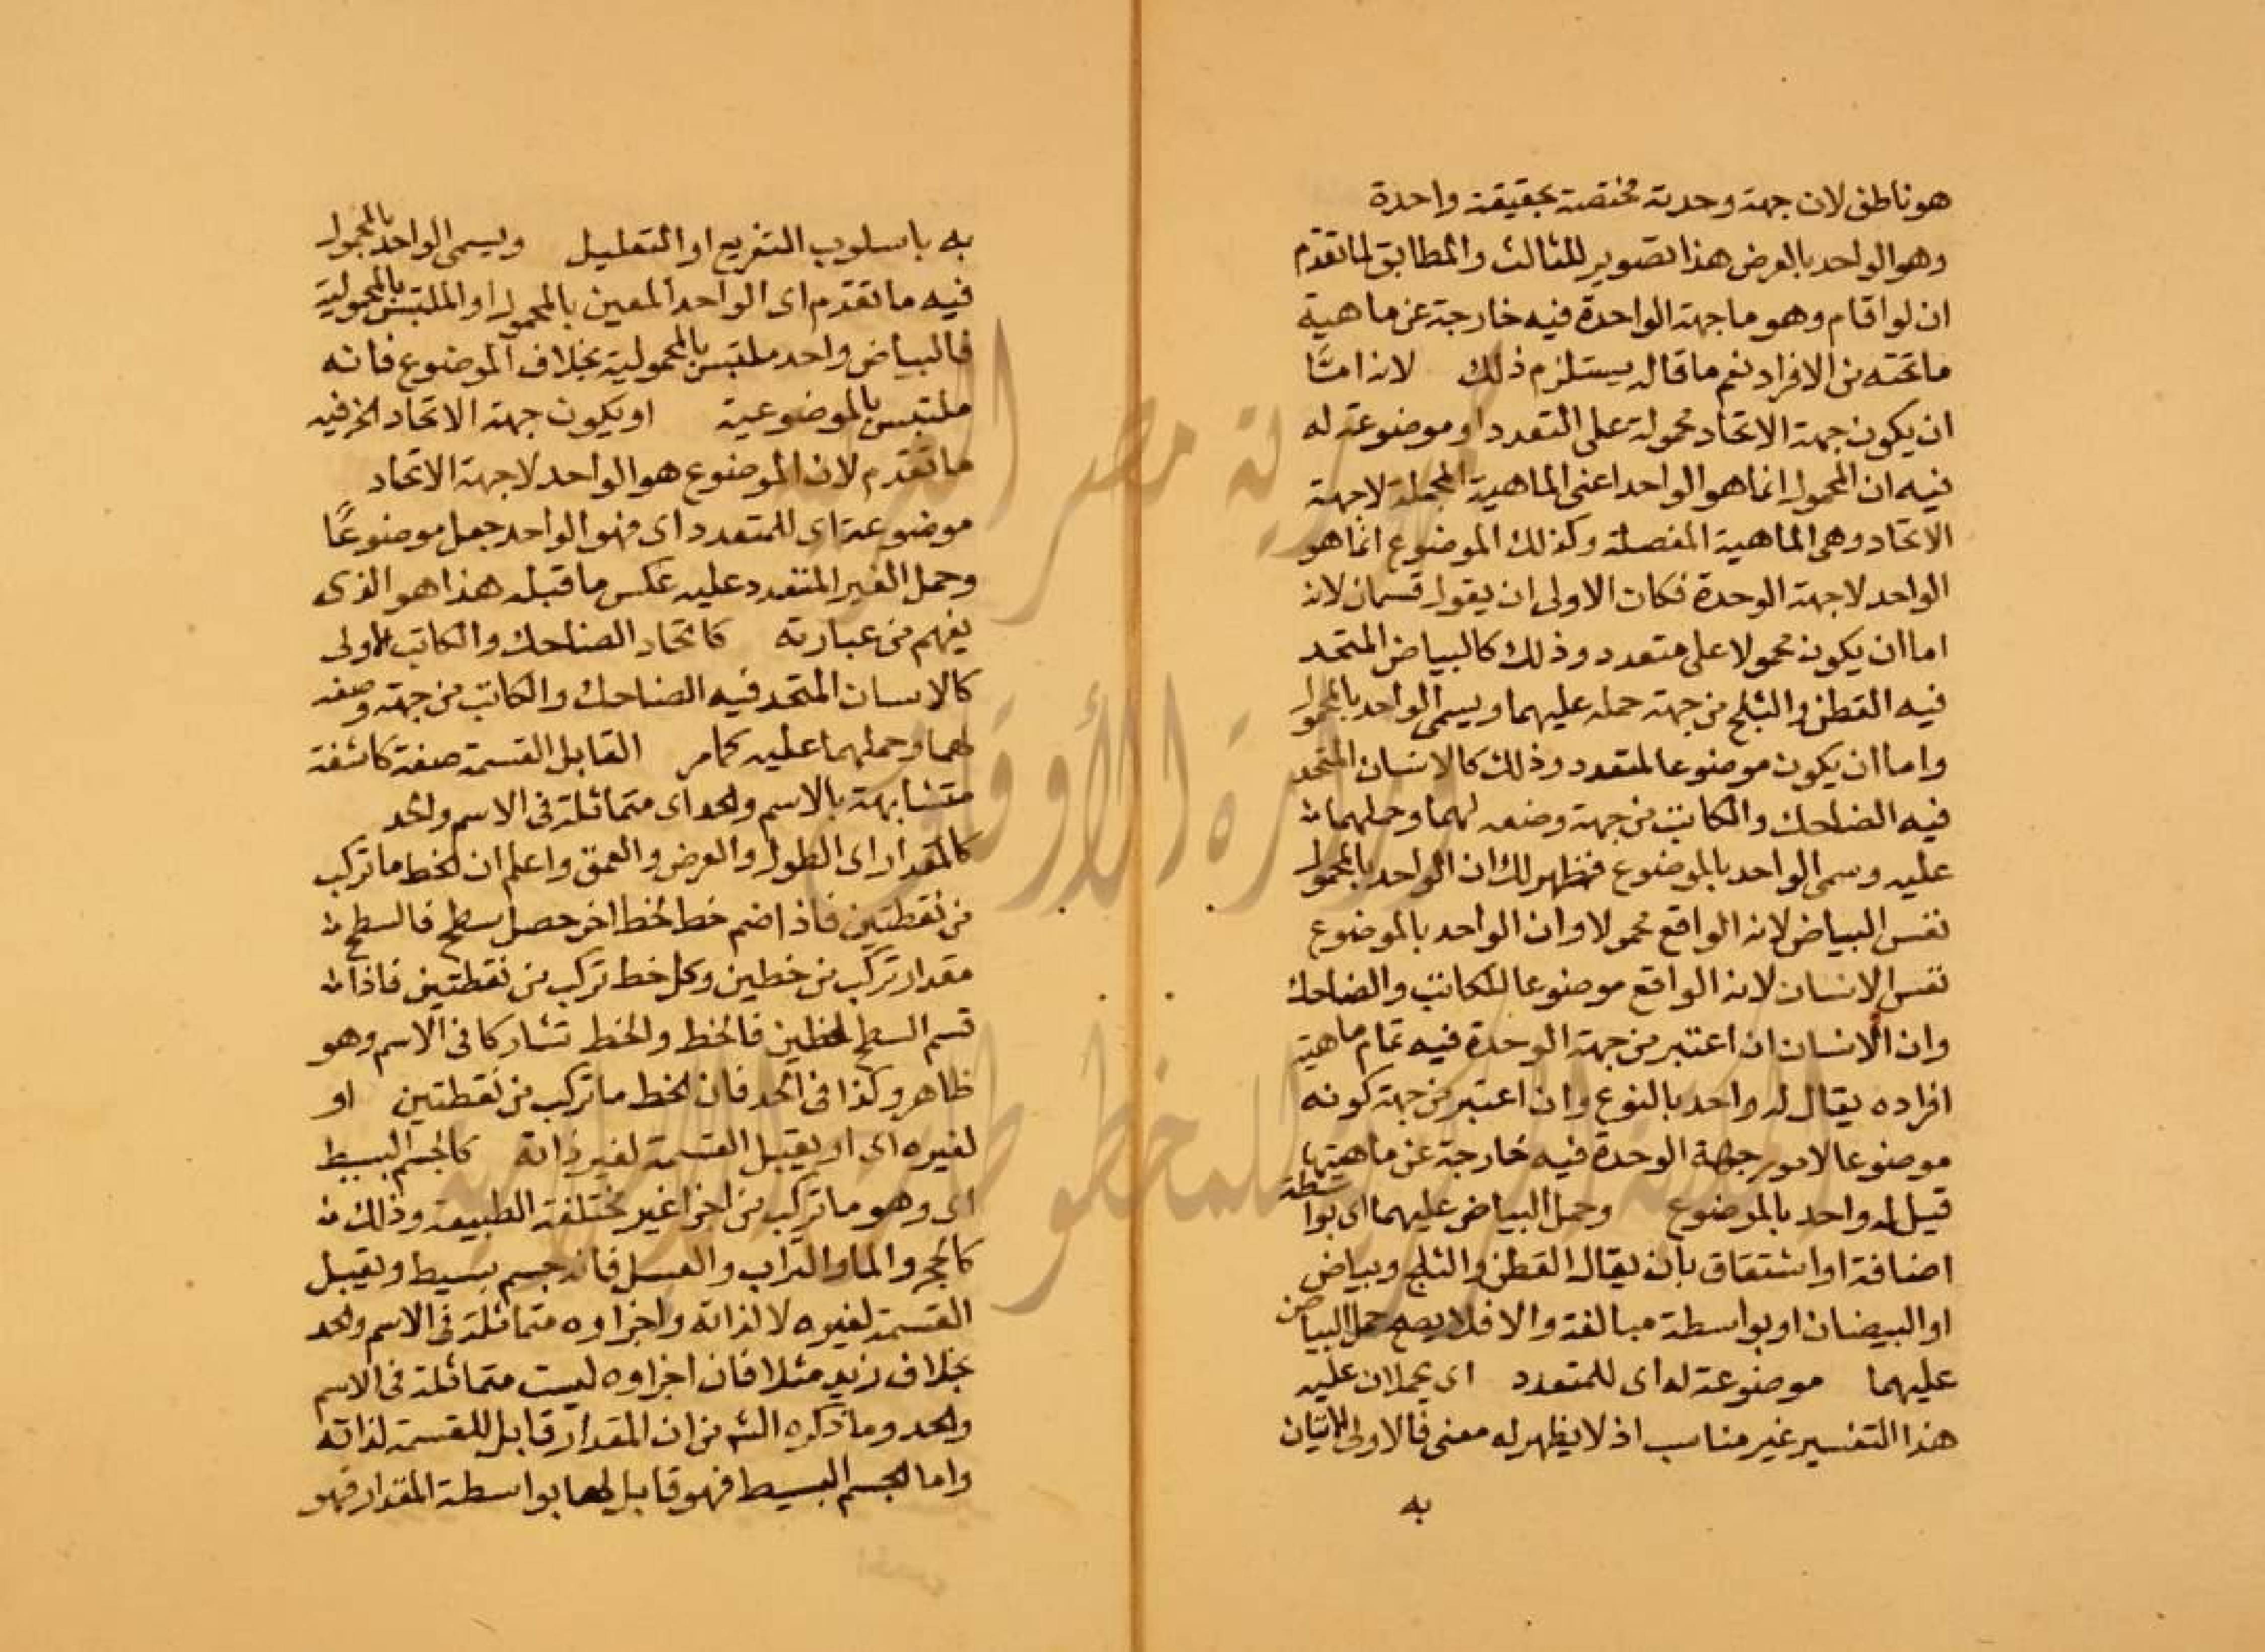 هو ناطق لان جهة وحدته مختصة بحقيقة واحدة
وهو الواحد بالعرض هذا تصوير للثالث والمطابق لما تقدم
ان لو اقام وهو ما جهة الواحدة فيه خارجة عن ماهية
ما تحته من الافراد نعم ما قاله يستلزم ذلك لانه امّا
ان يكون جهة الاتحاد محمولة على التعدد او موضوعة له
فيه ان المحمول انما هو الواحد اعنى الماهية المجملة لا جهة
الاتحاد وهى الماهية المفصلة وكذلك الموضوع انما هو
الواحد لا جهة الوحدة فكان الاولى ان يقول قسمان لانه
اما ان يكون محمولا على متعدد وذلك كالبياض المتحد
فيه القطن والثلج من جهة حمله عليهما ويسمى الواحد بالمحمول
واما ان يكون موضوعا لمتعدد وذلك كالانسان المتحد
فيه الضاحك والكاتب من جهة وضعه لهما وحملهما
عليه وسمى الواحد بالموضوع فظهر لك ان الواحد بالمحمول
نفس البياض لانه الواقع محمولا وان الواحد بالموضوع
نفس الانسان لانه الواقع موضوعا للكاتب والضاحك
وان الانسان ان اعتبر من جهة الوحدة فيه تمام ماهية
افراده يقال له واحد بالنوع وان اعتبر من جهة كونه
موضوعا لامور جهة الوحدة فيه خارجة عن ماهيتها
قيل له واحد بالموضوع وحمل البياض عليهما اى بواسطة
اضافة او اشتقاق بان يقال القطن والثلج وبياض
او البيضان او بواسطة مبالغة والا فلا يصح حمل البياض
عليهما موضوعة له اى للمتعدد اى يحملان عليه
هذا التفسير غير مناسب اذ لا يظهر له معنى فالاولى الاتيان
به
به باسلوب التفريع او التعليل ويسمى الواحد بالمحمول
فيه ما تقدم اى الواحد المعين بالمحمول او الملتبس بالمحمولية
فالبياض واحد ملتبس بالمحمولية بخلاف الموضوع فانه
ملتبس بالموضوعية او يكون جهة الاتحاد الخ فيه
ما تقدم لان الموضوع هو الواحد لا جهة الاتحاد
موضوعة اى للمتعدد اى فهو الواحد جعل موضوعًا
وحمل الغير المتعدد عليه عكس ما قبله هذا هو الذى
يفهم من عبارته كاتحاد الضاحك والكاتب الاولى
كالانسان المتحد فيه الضاحك والكاتب من جهة وضعه
لهما وحملهما عليه كما مر القابل القسمة صفة كاشفة
متشابهة بالاسم والحد اى متماثلة فى الاسم والحد
كالمقدار اى الطول والعرض والعمق واعلم ان الخط ما تركب
من نقطتين فاذا ضم خط لخط اخر حصل سطح فالسطح
مقدار تركب من خطين وكل خط تركب من نقطتين فاذا
قسم السطح لخطين فالخط والخط تشاركا فى الاسم وهو
ظاهر وكذا فى الحد فان الخط ما تركب من نقطتين او
لغيره اى او يقبل القسمة لغير ذاته كالجسم البسيط
اى وهو ما تركب من اجزا غير مختلفة الطبيعة وذلك
كالحجر والما والتراب والعسل فانه جسم بسيط ويقبل
القسمة لغيره لا لذاته واجزاوه متماثلة فى الاسم والحد
بخلاف زيد مثلا فان اجزاوه ليست متماثلة فى الاسم
والحد وما ذكره الشم من ان المقدار قابل للقسمة لذاته
واما الجسم البسيط فهو قابل لها بواسطة المقدار فهو